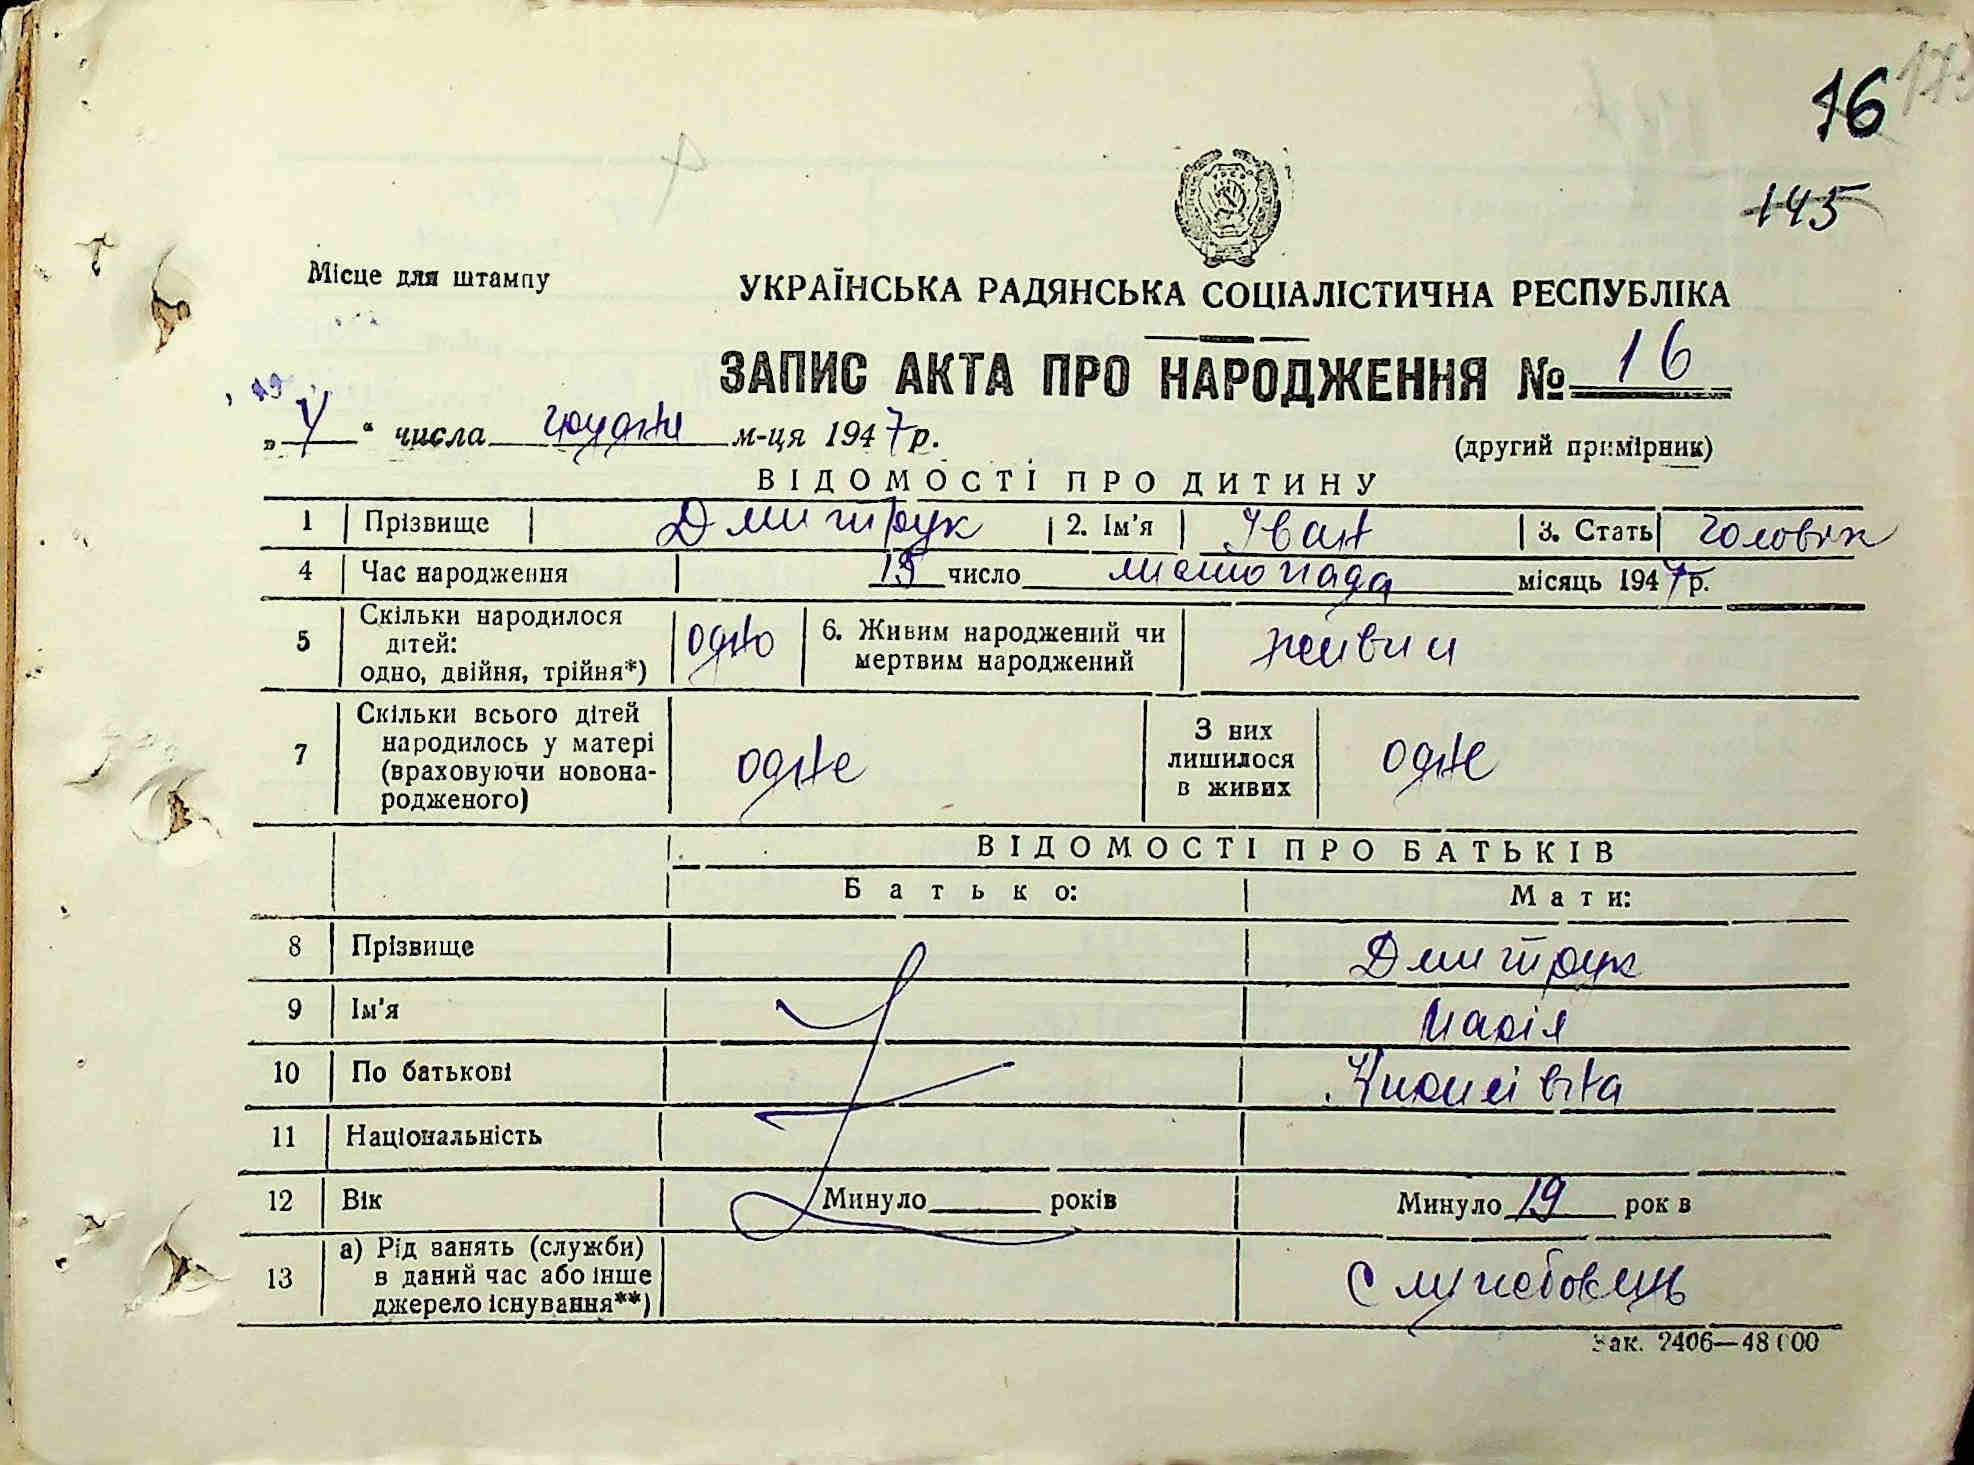 16
145
Місце для штампу
УКРАЇНСЬКА РАДЯНСЬКА СОЦІАЛІСТИЧНА РЕСПУБЛІКА
ЗАПИС АКТА ПРО НАРОДЖЕННЯ № 16
„ “ числа грудня м-ця 1947 р.
(другий примірник)
ВІДОМОСТІ ПРО ДИТИНУ
1 Прізвище Дмитрук 2. Ім'я Іван 3. Стать чоловік
4 Час народження 15 число листопада місяць 1947 р.
5 Скільки народилося дітей: одно, двійня, трійня*) одно 6. Живим народжений чи мертвим народжений живим
7 Скільки всього дітей народилось у матері (враховуючи новонародженого) одне З них лишилося в живих одне
ВІДОМОСТІ ПРО БАТЬКІВ
Батько: Мати:
8 Прізвище Дмитрук
9 Ім'я Марія
10 По батькові
11 Національність
12 Вік Минуло років Минуло 19 рок в
13 а) Рід занять (служби) в даний час або інше джерело існування**) Службовець
Зак. 2406—48000